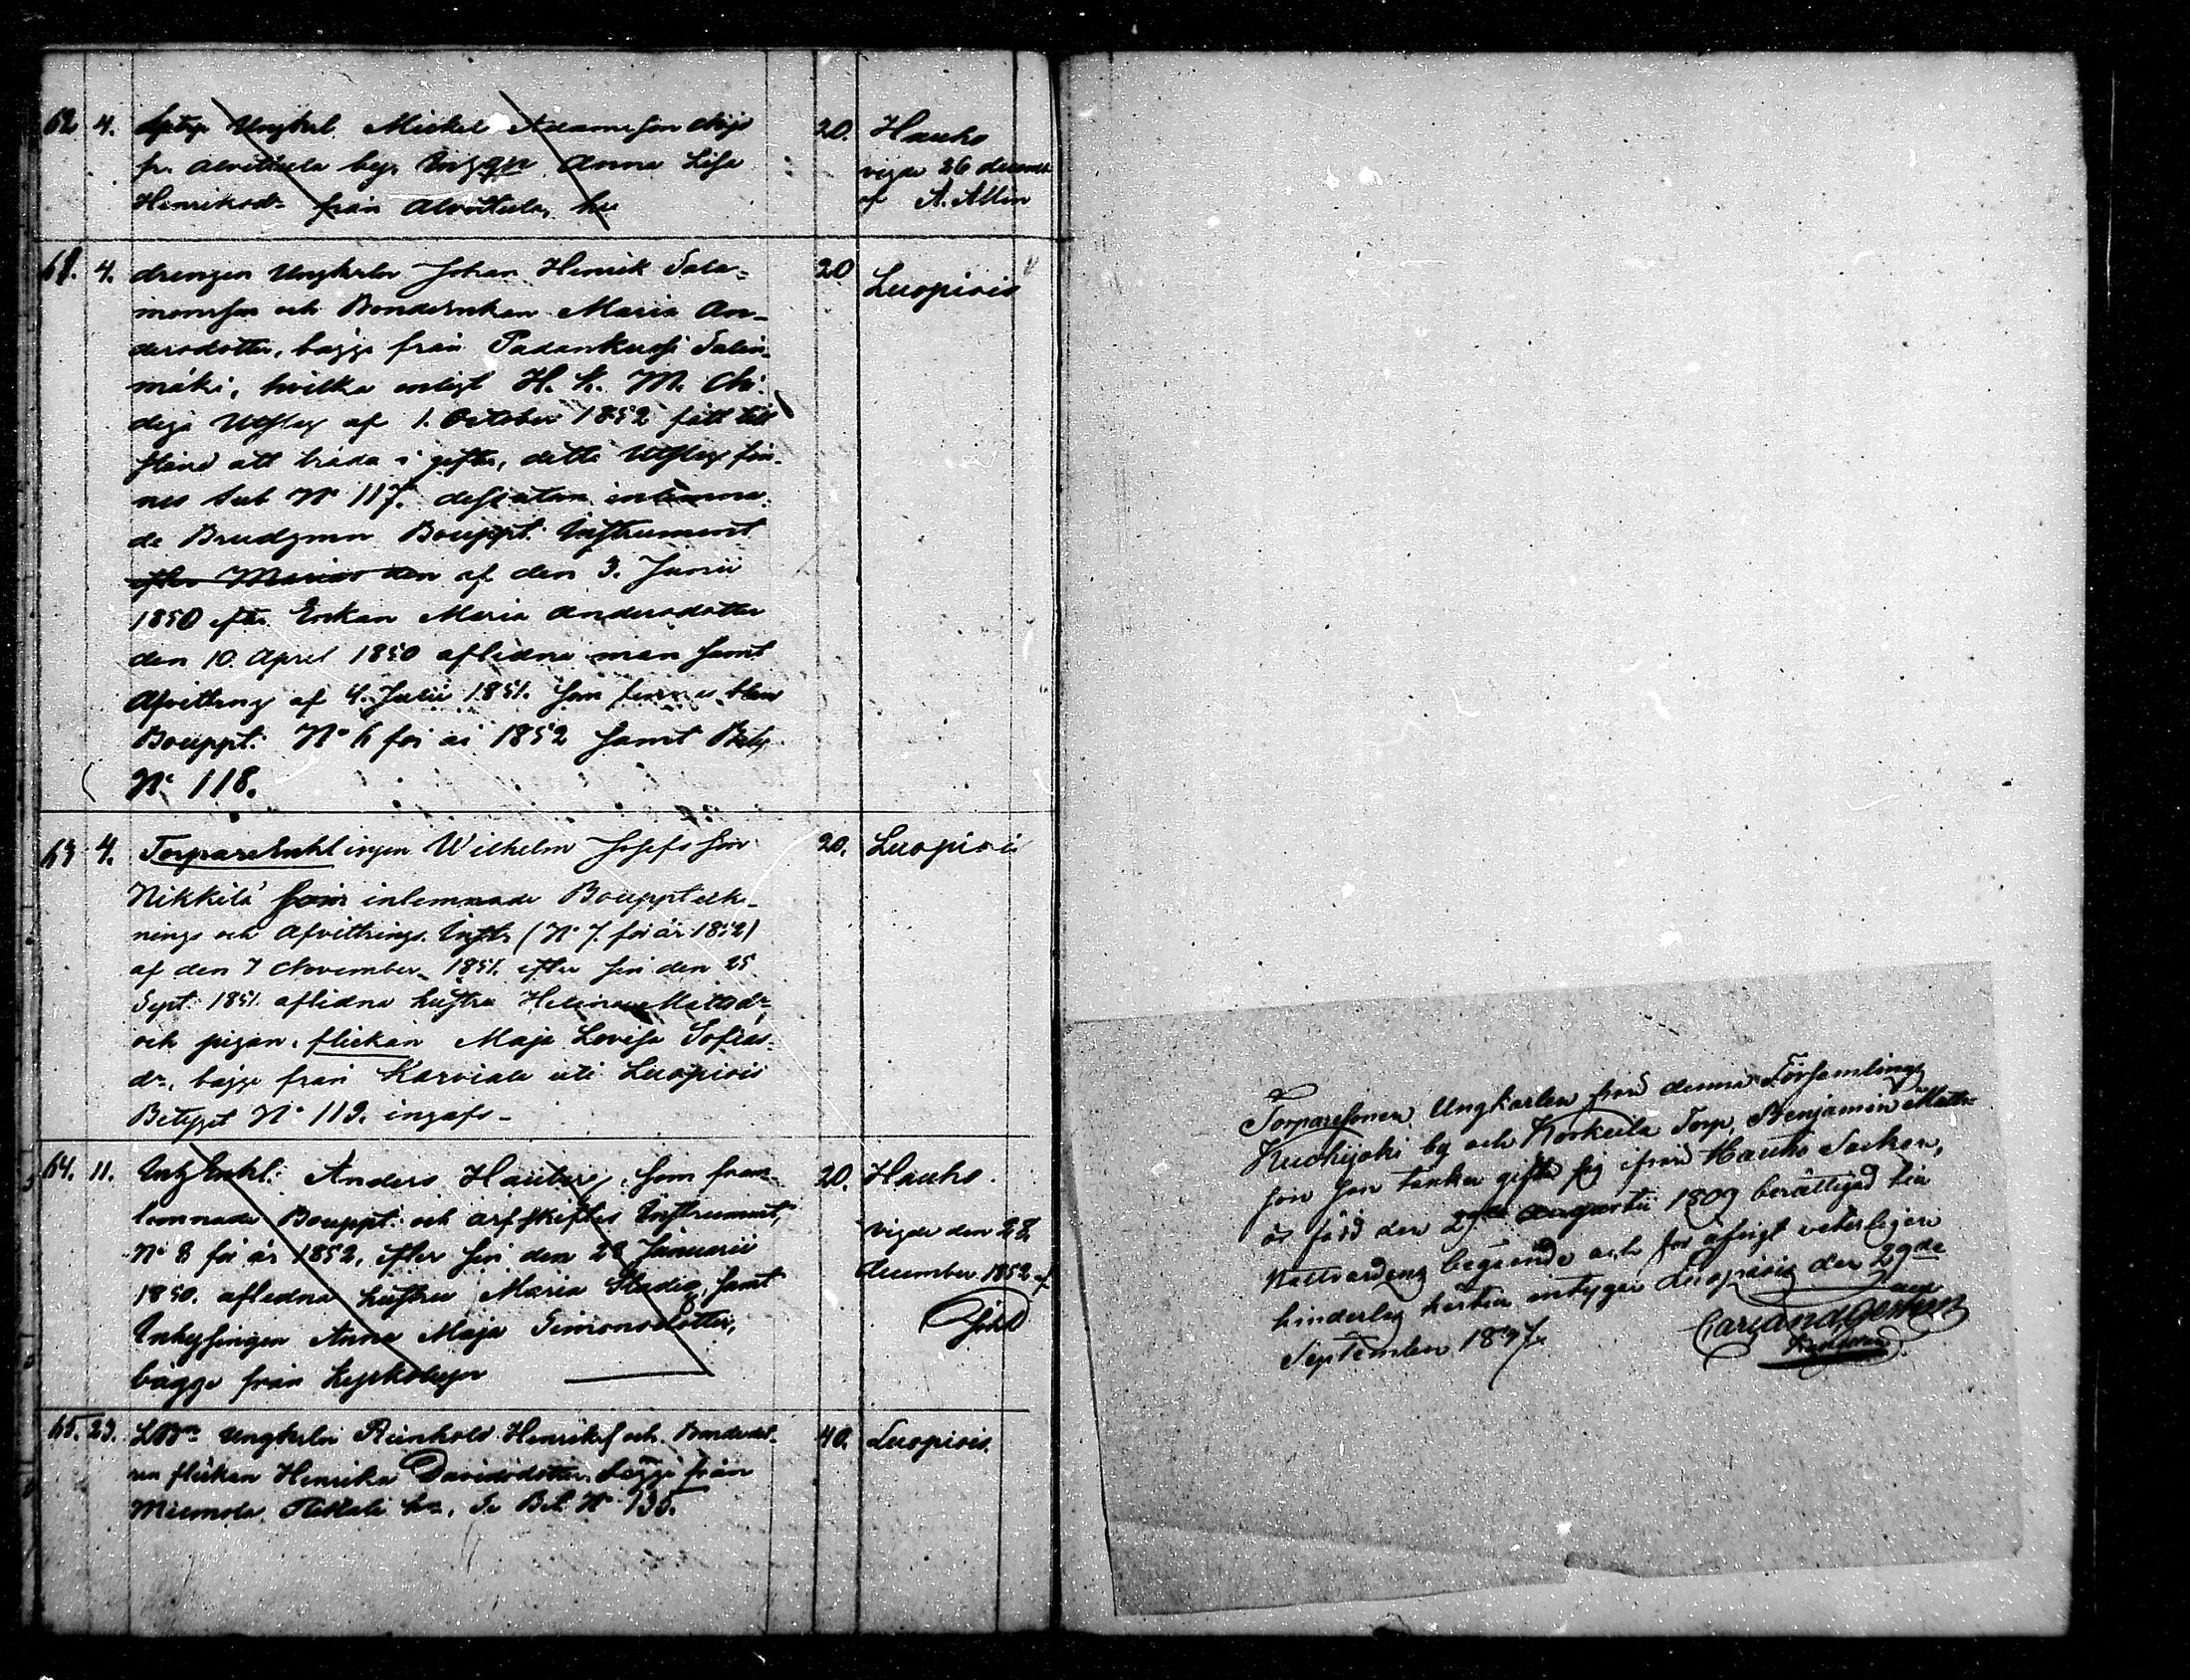 62 4. Ungkarl. Mickel Adamsson
fr. Alvettula by, Anna Lisa
Henriksdr från Alvettula,
20. Hauho
vigde 26 decemb
af A. Allen
4. drengen Ungkarln Johan Henrik Salo-
monsson och Bondeenkan Maria An-
dersdotter, bägge från Padankoski Salin-
mäki, hvilka enligt H. K. M.
Utslag af 1. October 1852 fått till
stånd att träda i gifte, detta Utslag fin-
nes sub No 117. dessutan inlemna-
de Brudgmn Bouppt. Instrument
efter Marias den af den 3. Junii
1850 eftr Enkan Maria Andersdotter
den 10. April 1850 aflidne man samt
Afvittring af 4. Julii 1851. som finnes bland
Bouppt. No 6 för år 1852 samt Betyg
No 118.
20 Luopiois
63 4. Torpare Enklingen Wilhelm Josefsson
Nikkilä som inlemnade Bouppteck-
nings och Afvittrings Instr (No 7. för år 1852)
af den 7 November 1851. efter sin den 25
Sept. 1851 aflidna hustru Helena Matsdr,
och pigan, flickan Maja Lovisa Sofias-
dr, bägge från Karviala uti Luopiois
Betyget No 119. ingafs-
20. Luopiois
64. 11. Enkl. Anders Hauber, som fram-
lemnade Bouppt. och arfskiftes Instrument,
No 8 för år 1852, efter sin den 28 Januarii
1850. aflidna hustru Maria Stadig, samt
Inhysingen Anna Maja Simonsdotter,
bägge från Kyrkobyn
20. Hauho.
vigde den 28.
december 1852 af
65. 23. LBn Ungkarln Reinhold Henrikss och Bondedot-
ren flickan Henrika Davidsdotter, bägge från
No 135.
40. Luopiois.
Torparesonen, Ungkarlen från denna Församlings
Kuohijoki by och Korkeila Torp, Benjamin Matts-
son som tänker gifta sig ifrån Hauho Socken,
är född den 27de Augustii 1809 berättigad till
Nattvardens begående och för öfrigt veterligen
hinderlös härtill intygar Luopiois den 29de
September 1837.